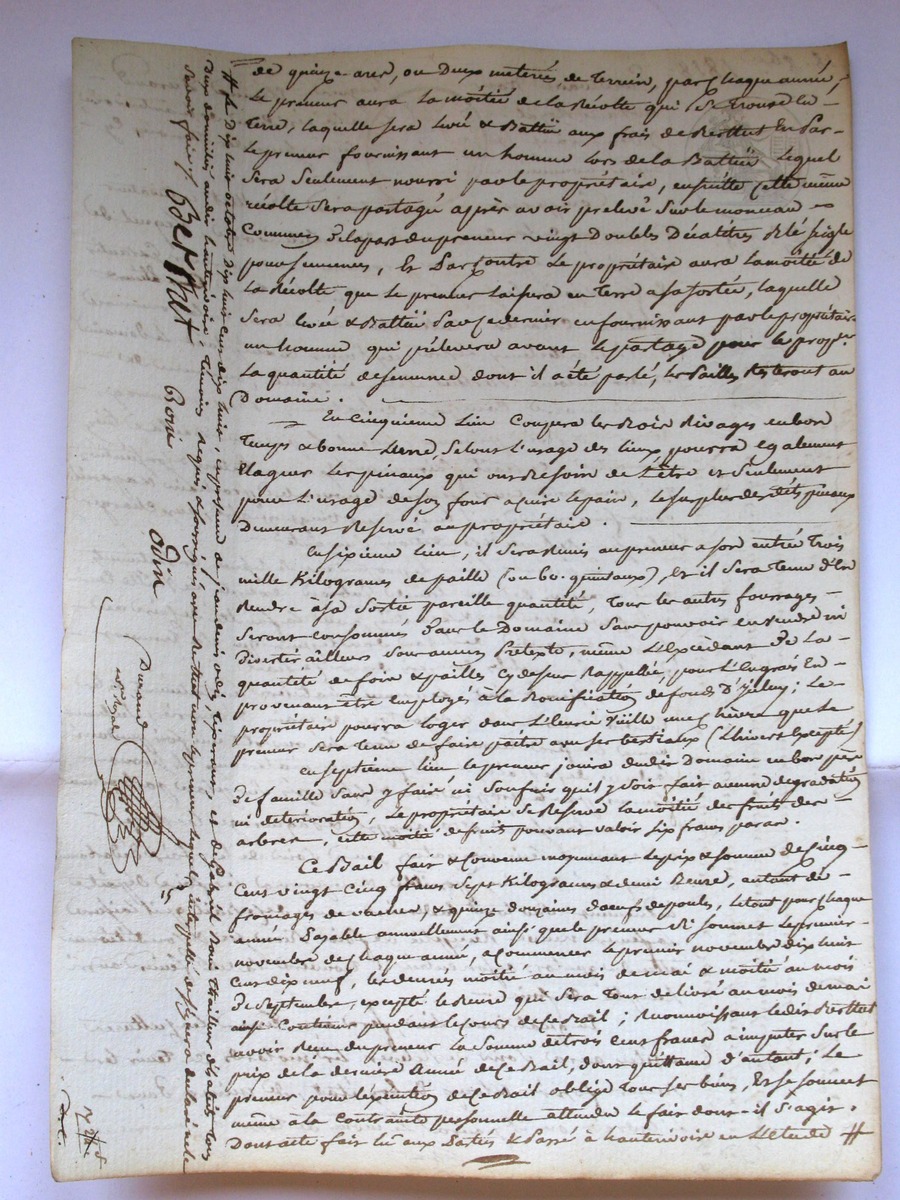 de quinze ares, ou deux meterées de terrein, par chaque année,
Le preneur aura La moitié de la Récolte qui Se trouve En
Terre, laquelle sera Levée & Battue aux frais de Berthet En par
Le preneur fournissant un homme Lors de la Battue Lequel
Sera Seulement nourri par le propriétaire, ensuitte cette même
récolte Sera partagé après avoir prelevé Sur le monceau
Commun de la part du preneur vingt Doubles Décalitres de blé seigle
pour semences, Et Par Contre Le propriétaire aura La moitié de
La Récolte que Le preneur Laissera en terre a sa Sortie, laquelle
Sera Levée & Battue Par ce dernier en fournissant par le propriétaire
un homme qui prélevera avant Le partage pour le propre
La quantité de semence dont il a été parlé, les Pailles Resteront au
Domaine.
En Cinquieme Lieu Coupera Les Bois Rivages en bon
Temps & bonne Lune, Selon L'usage des lieux, pourra Egalement
Elaguer Les pinaux qui ont Besoin de L'être et Seulement
pour L'usage de son four a cuire le pain, Le surplus desdits pinaux
Demeurant Reservé au propriétaire.
En sixieme Lieu, il Sera Remis au preneur a son entrée Trois
mille Kilogrames de paille (ou 60. quintaux), Et il Sera Tenu d'En
Rendre à sa Sortie pareille quantité, Tous les autres fourrages
Seront Consommés Dans le Domaine Sans pouvoir en vendre ni
Divertir ailleurs Sous aucun Prétexte, même L'Excédant De La
quantité de foin & pailles Cy dessus Rappellée, pour L'Engrais En
provenant être Employés à La Bonification des fonds D'yceluy; Le
propriétaire pourra Loger dans L'Ecurie vieille une Chèvre que Le
preneur Sera Tenu de faire paître avec ses bestiaux (L'hivert Excepté)
En septieme Lieu le preneur jouira dudit Domaine en bon père
De famille Sans y faire ni Souffrir qu'il y Soit fait aucune degradation
ni deterioration, Le propriétaire Se Reserve La moitié des fruits des
arbres, cette moitié de fruits pouvant valoir Six francs par an.
Ce Bail fait & Convenu moyennant Le prix & Somme de Cinq
Cent vingt Cinq francs Sept Kilogrames & demi Beurre, autant de
fromages de vaches, & quinze douzaines d'oeufs de poules, Le tout pour Chaque
année Payable annuellement ainsi que le preneur S'y soumet Le premier
novembre de Chaque année, a Commencer Le premier novembre dix huit
Cent dix neuf, les denrées moitié au mois de mai & moitié au mois
De Septembre, excepté le Beurre qui Sera Tout delivré au mois de mai
ainsi Continuer pendant le cours de Ce Bail; Reconnoissant ledit Berthet
avoir Reçu du preneur La Somme de trois Cent francs a imputer Sur Le
prix de la derniere Année de Ce Bail, dont quittance d'autant; Le
preneur pour L'exécution de Ce Bail oblige Tous ses biens, Et se Soumet
même à la Contrainte personnelle attendu le fait dont il S'agit.
Dont acte fait Lu aux Parties & Passé à hauterivoire en L'Etude #
# Le Dix huit octobre Dix huit cent dix huit, en présence de jean denis odin, & de Gabriel Boni Tailleur D'habits tous
Deux domiciliés audit hauterivoire, Témoins Requis & soussignés avec Berthet non le preneur Lequel interpellé de signer a declaré ne le
Savoir faire
Berthet
Boni
odin
Durand
Nre Royal